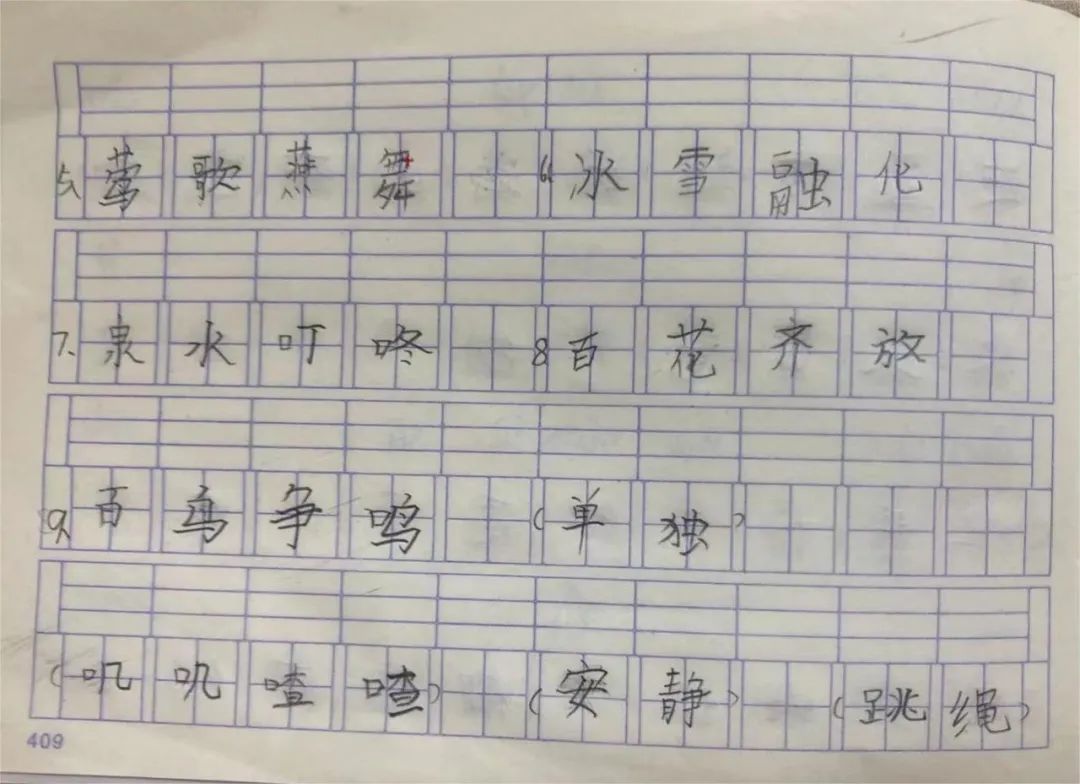 5、莺歌燕舞 6、冰雪融化
7、泉水叮咚 8百花齐放
9、百鸟争鸣 (单独)
(叽叽喳喳) (安静) (跳绳)
409